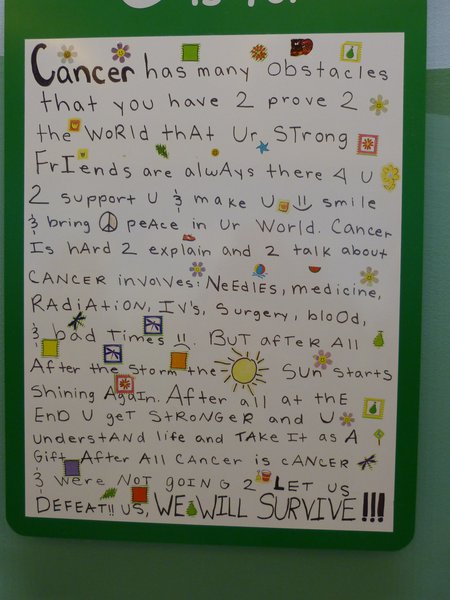 is for
Cancer has many obstacles
that you have 2 prove 2
the WoRlD thAt Ur STrong
FrIends are alwAys there 4 U
2 support U & make U smile
& bring peAce in Ur World. Cancer
Is hArd 2 explain and 2 talk about
CANCER involves: NeEdlEs, medicine,
RAdiAtioN, IV's, Surgery, bloOd,
& bad Times. BUT afTeR All
After the storm the Sun starts
Shining AgaIn. After all at thE
EnD U geT STRoNGeR and U
understAND life and TAKE It as A
Gift. After All Cancer is cANCER
& were NoT GOING 2 LET US
DEFEAT!! US, WE WILL SURVIVE!!!